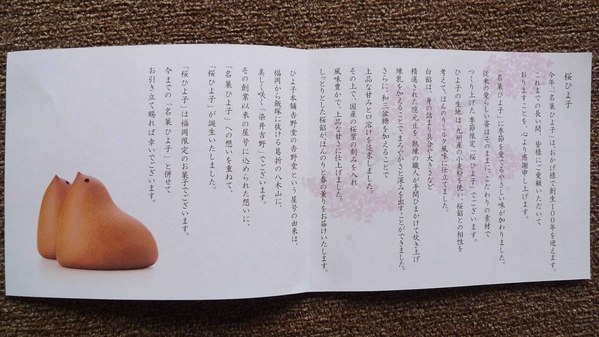 桜ひよ子
今年、「名菓ひよ子」は、おかげ様で創生100年を迎えます。
これまでの長い間、皆様にご愛顧いただいて
おりますことを、心より感謝申し上げます。
「名菓ひよ子」に季節を愛でるやさしい味が加わりました。
従来の愛らしい姿はそのままに、こだわりの素材で
つくり上げた季節限定「桜ひよ子」でございます。
ひよ子の生地は、九州産の小麦粉を使い、桜餡との相性を
考えて、ほんのりミルク風味に仕立てました。
白餡は、身の詰まり具合や大きさなど
精選された隠元豆を、熟練の職人が手間ひまかけて炊き上げ
練乳を加えることで、まろやかさと深みを出すことができました。
さらに、和三盆糖を加えることで
上品な甘みと口溶けを追求しました。
その上で、国産の桜葉の刻みを入れ
風味豊かで、上品な甘さに仕上げました。
しっとりとした桜餡が、ほんのりと春の薫りをお届けいたします。
ひよ子本舗吉野堂の吉野堂という屋号の由来は、
福岡から飯塚に抜ける葛折の八木山に、
美しく咲く「染井吉野」でございます。
その創業以来の屋号に込められた想いに、
「名菓ひよ子」への想いを重ねて、
「桜ひよ子」が誕生いたしました。
「桜ひよ子」は福岡限定のお菓子でございます。
今までの「名菓ひよ子」と併せて
お引き立て賜れば幸いでございます。